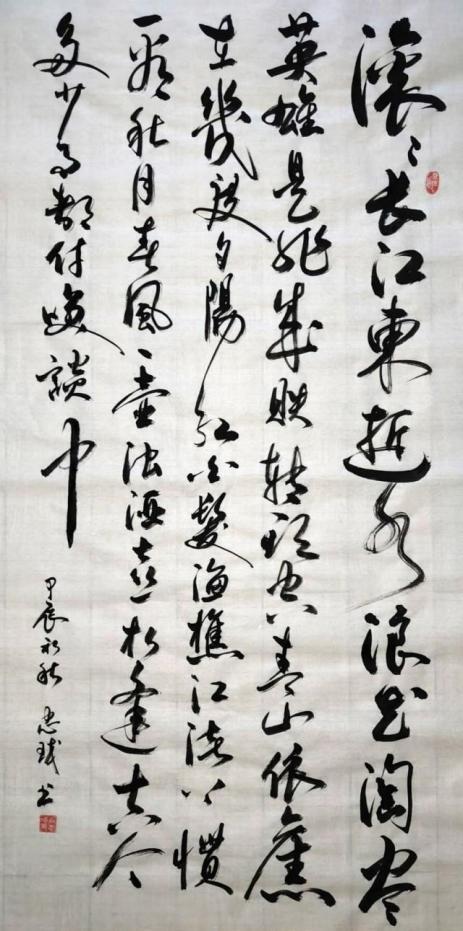 滚〻长江東逝水浪花淘尽
英雄是非成敗转头空青山依舊
在幾度夕陽红白髮渔樵江渚上慣
看秋月春風一壶浊酒喜相逢古今
多少事都付笑談中
甲辰初秋 忠 书